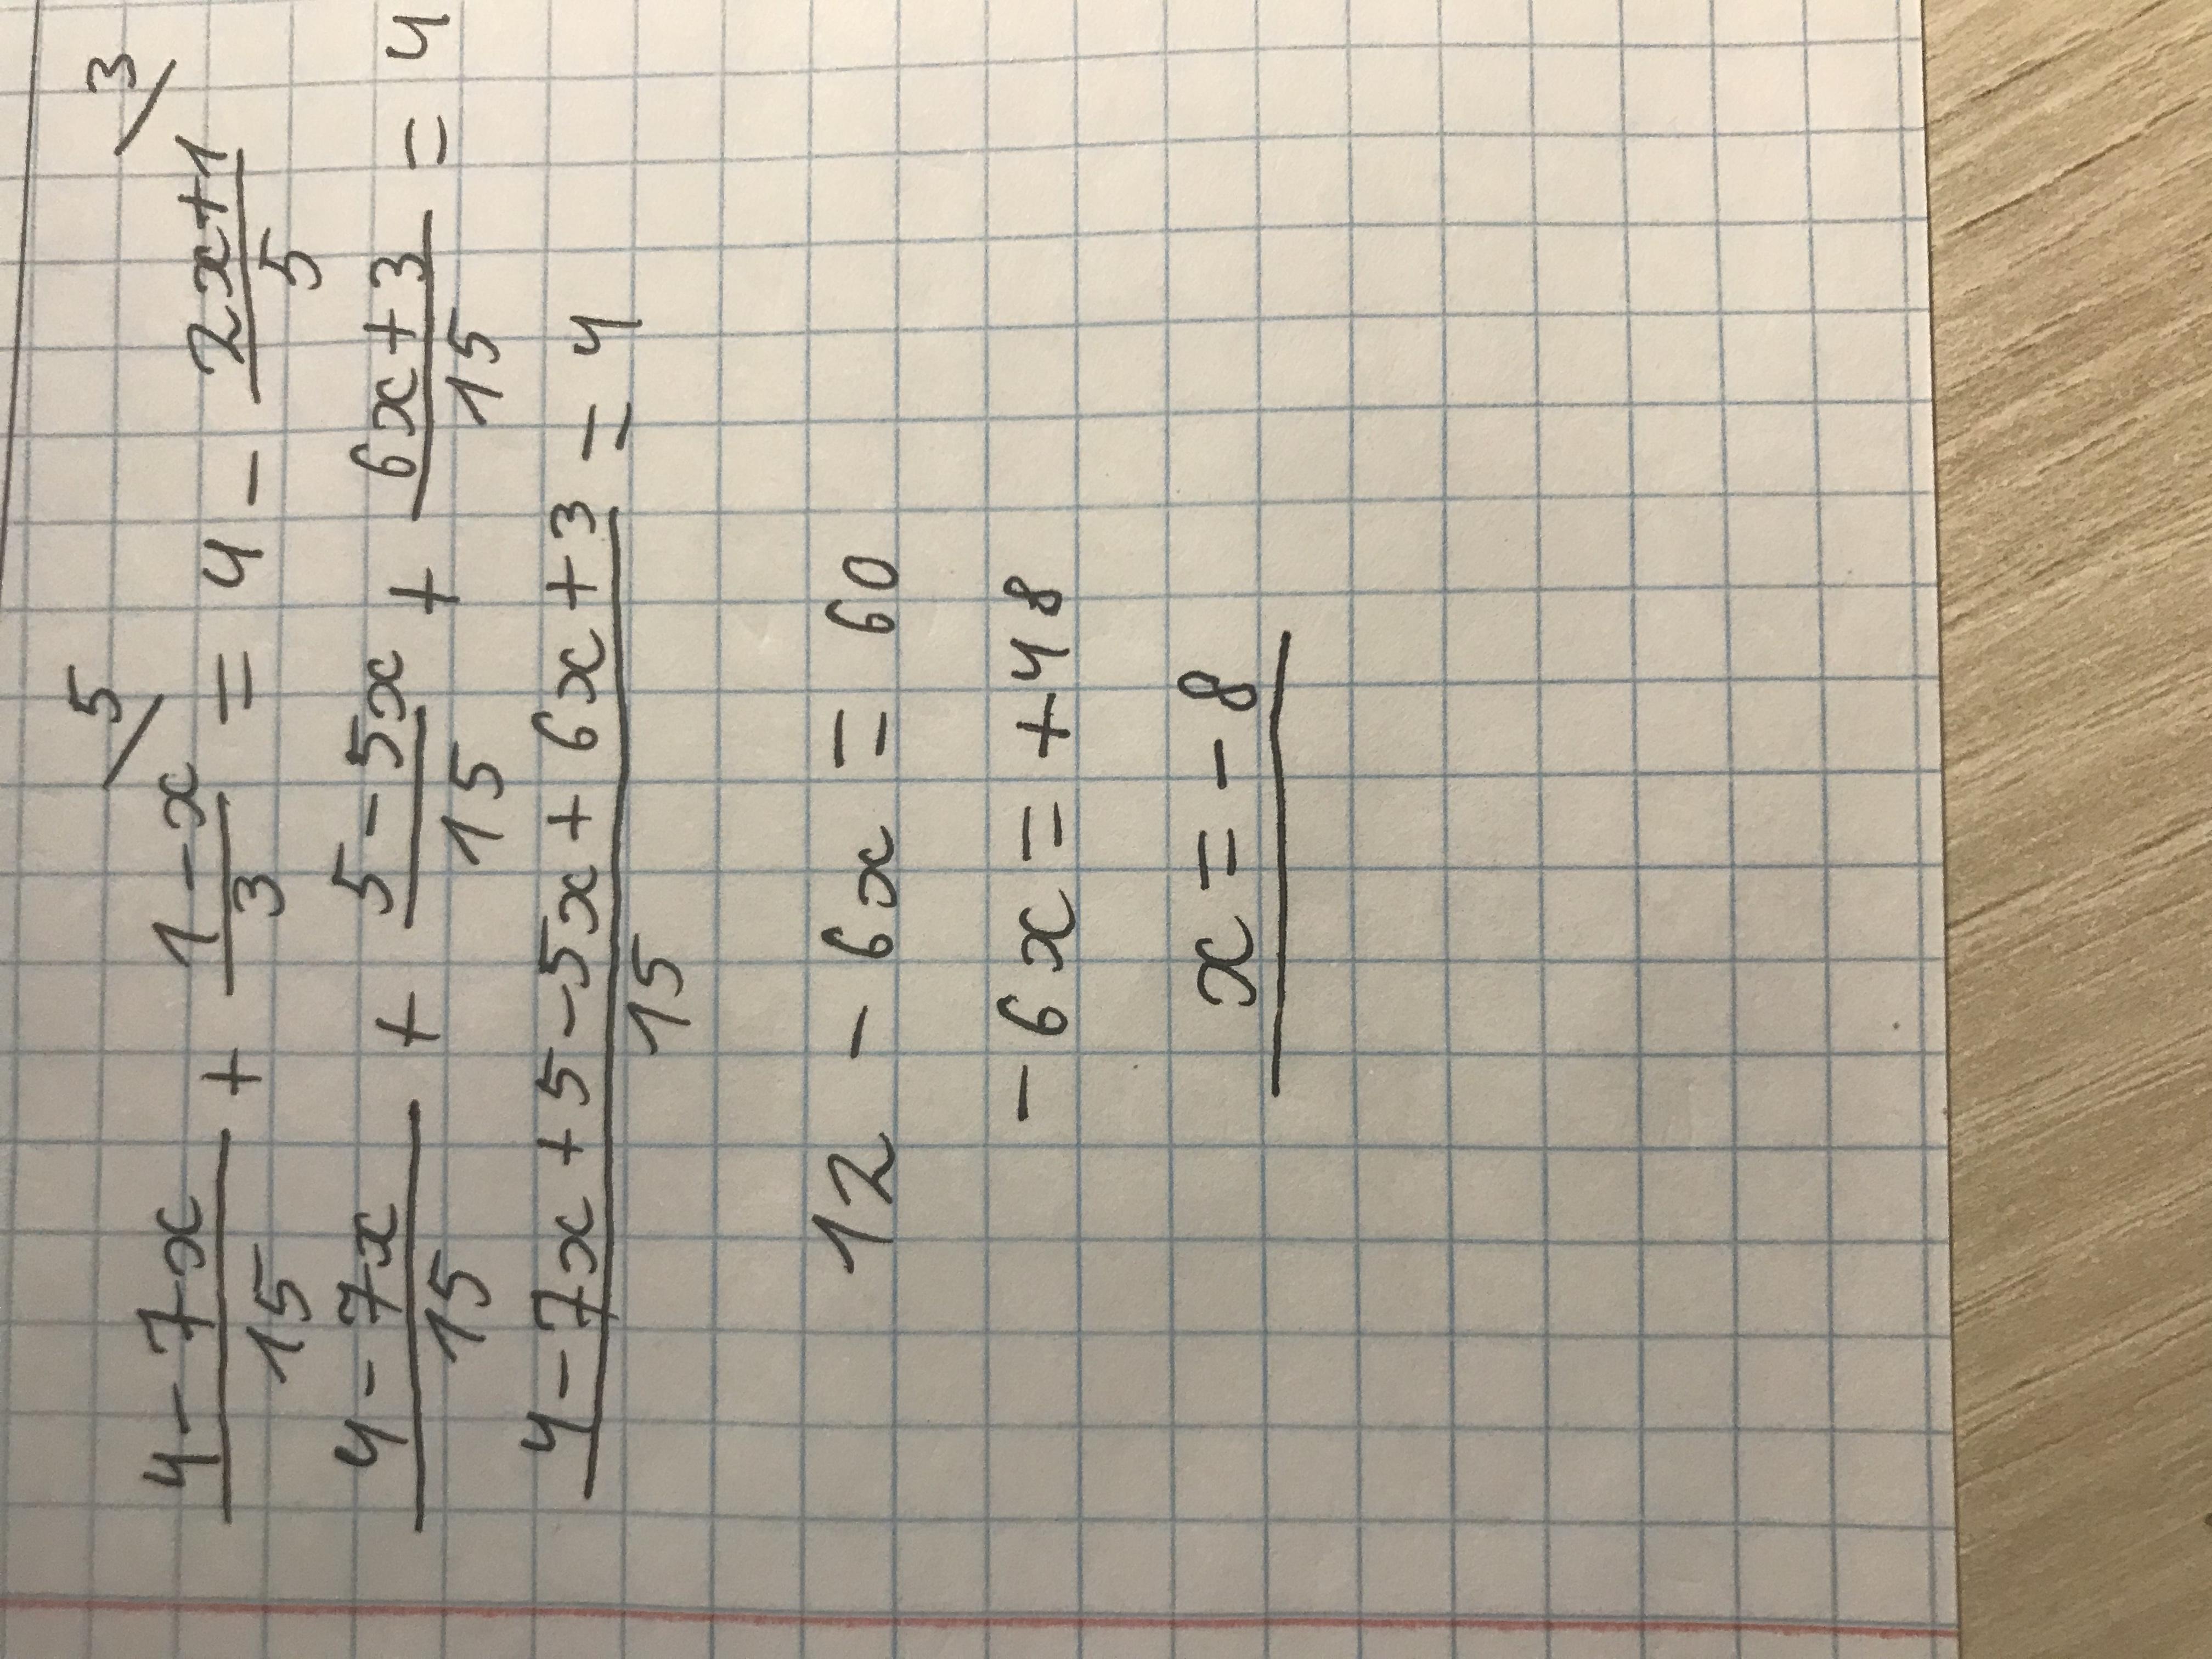 5/ 3/
(4-7x)/15 + (1-x)/3 = 4 - (2x+1)/5
(4-7x)/15 + (5-5x)/15 + (6x+3)/15 = 4
(4-7x+5-5x+6x+3)/15 = 4
12 - 6x = 60
-6x = +48
x = -8